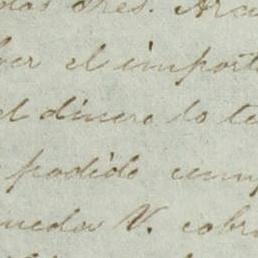 dos Sres. Ara
ber el import
el dinero lo te
podido cump
uedor V. cobr